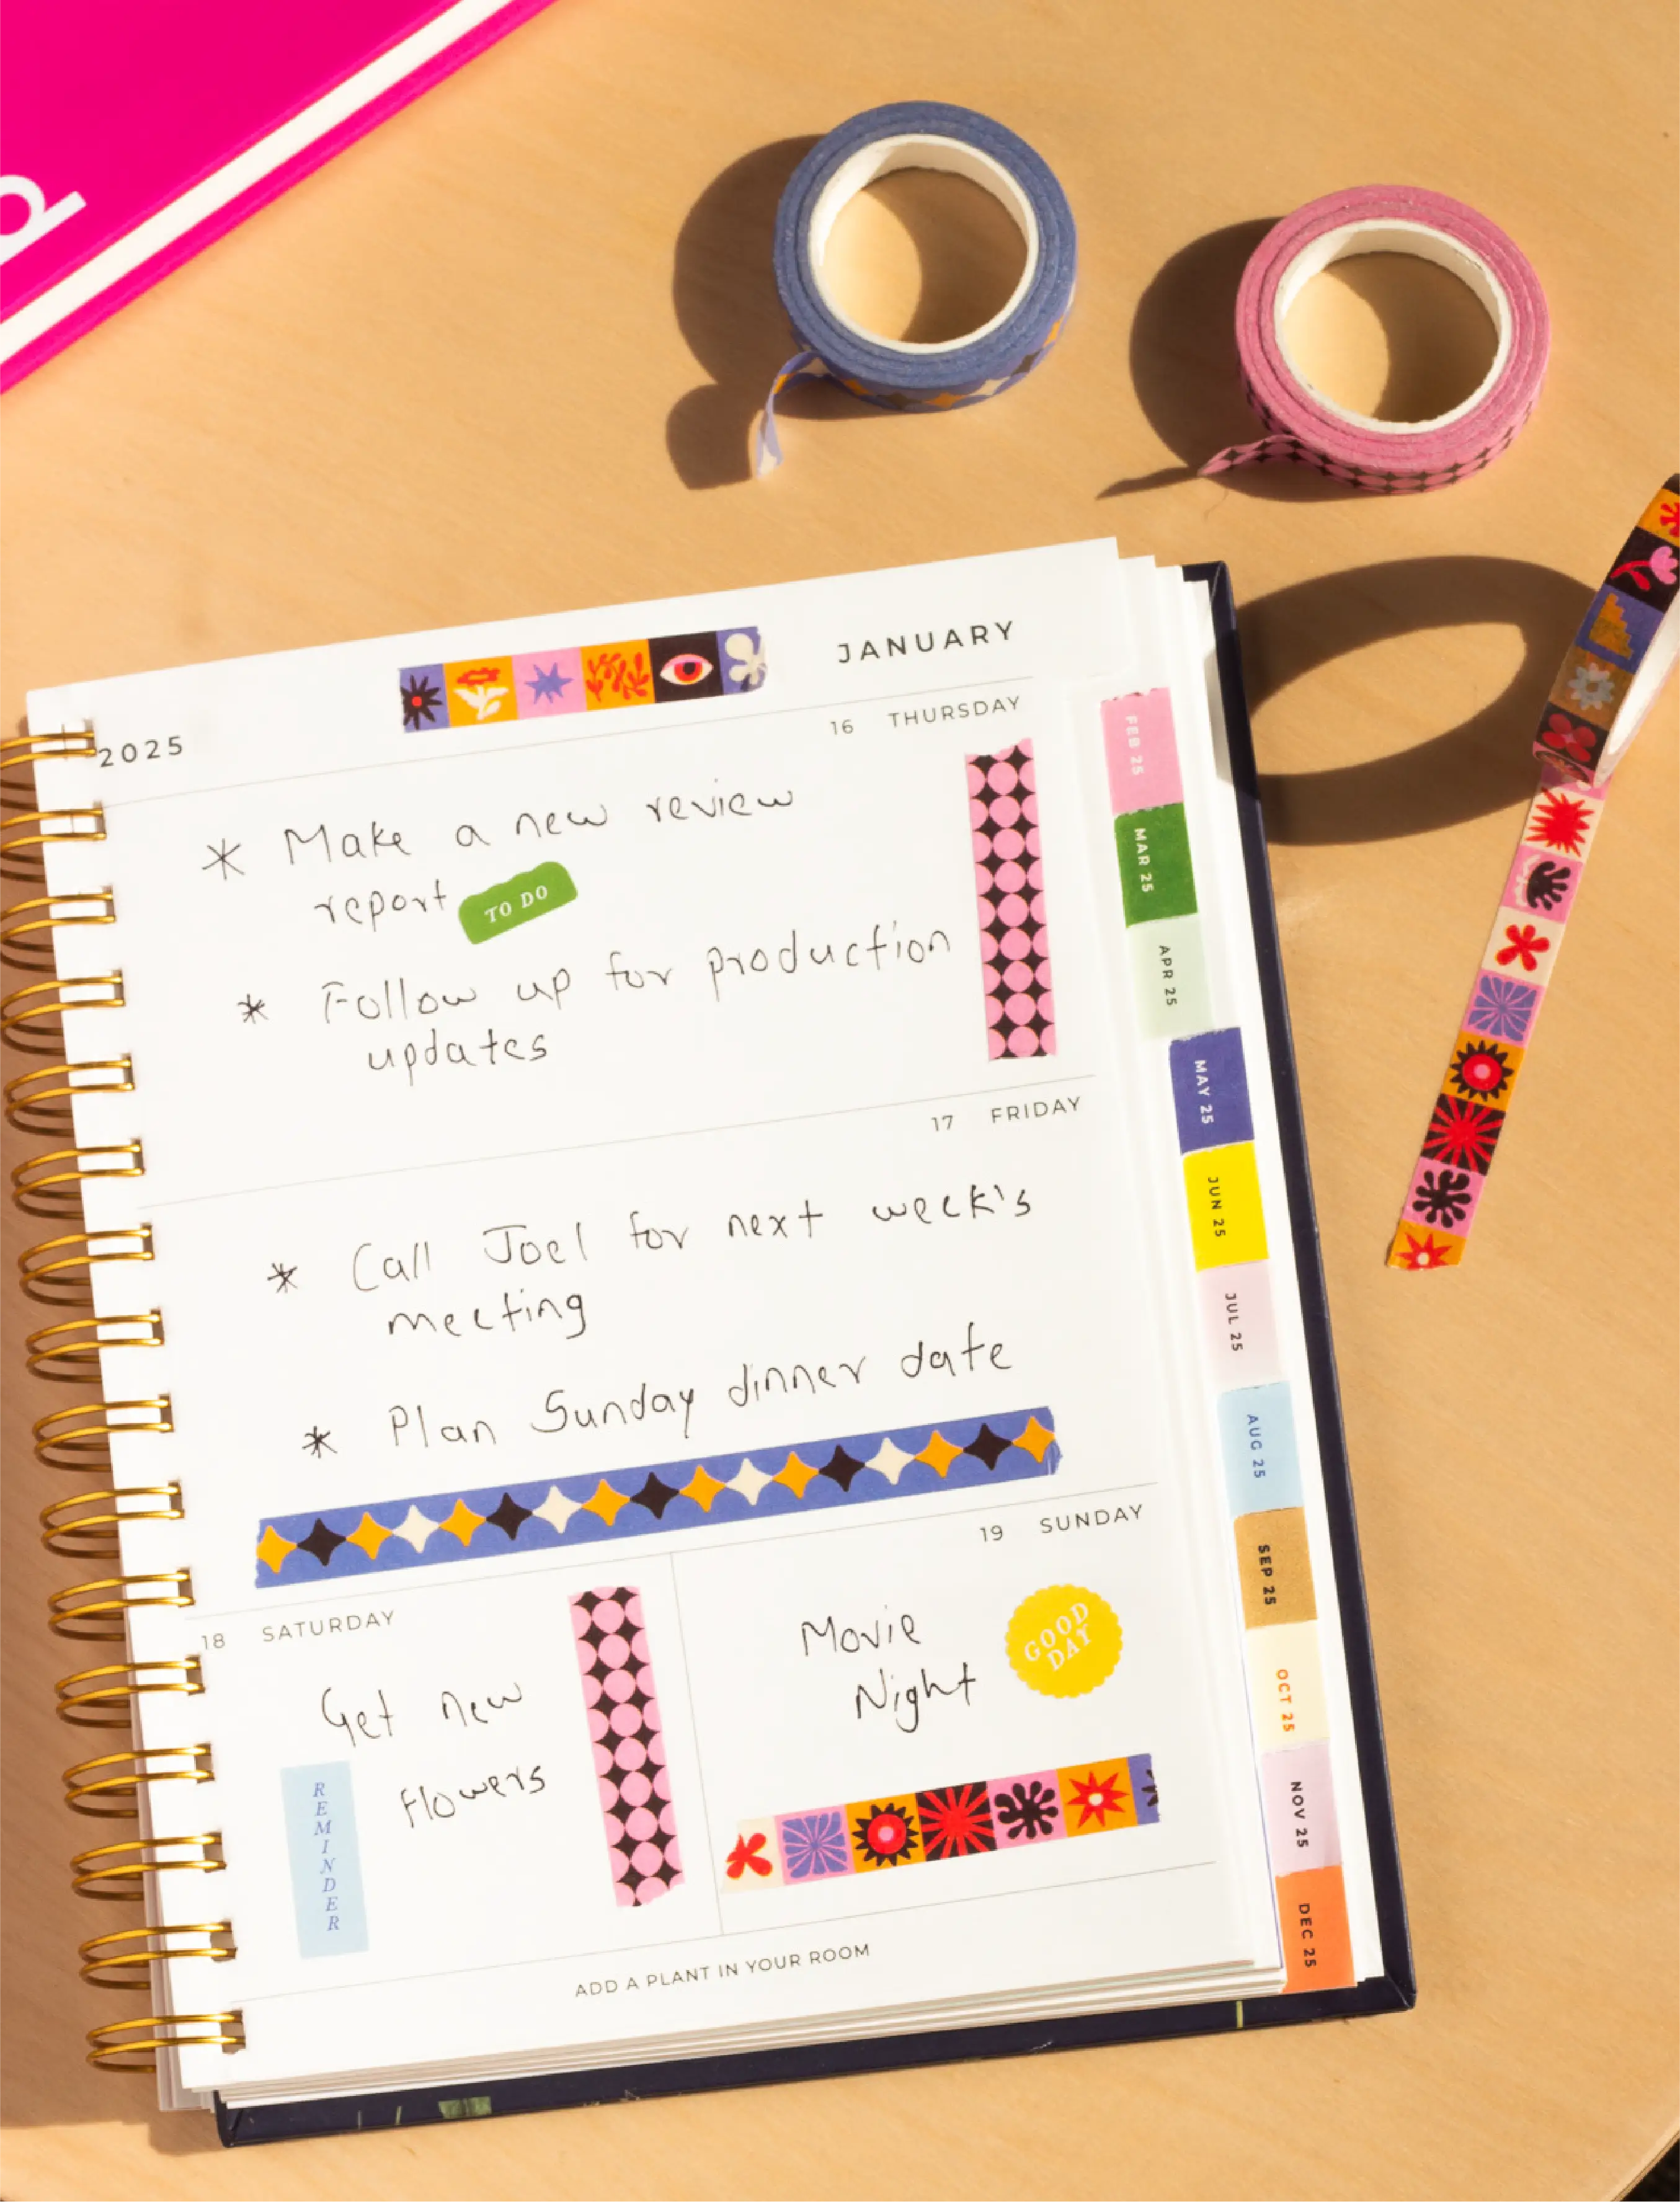 JANUARY
2025
16 THURSDAY
* Make a new review
report TO DO
* Follow up for production
updates
17 FRIDAY
* Call Joel for next week's
meeting
* Plan Sunday dinner date
18 SATURDAY
Get new
flowers
REMINDER
19 SUNDAY
Movie
Night
GOOD
DAY
ADD A PLANT IN YOUR ROOM
FEB 25
MAR 25
APR 25
MAY 25
JUN 25
JUL 25
AUG 25
SEP 25
OCT 25
NOV 25
DEC 25